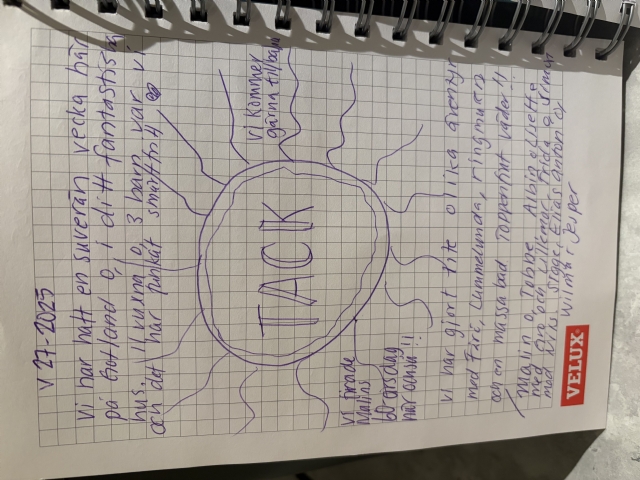 V 27-2025
Vi har haft en suverän vecka här
på Gotland o, i ditt fantastiska
hus. 11 vuxna o, 3 barn var vi
och det har funkat smärtfritt
Vi kommer
gärna tillbaka
TACK
Vi firade
Malins
60 årsdag
här också!!
Vi har gjort lite olika äventyr
med Fårö, Lummelunda, ringmuren
och en massa bad. Toppenfint väder!!
Malin o Tobbe, Albin o
med Bro och Wilmer, Frida o
med Nils,
Wilma, Jesper
VELUX